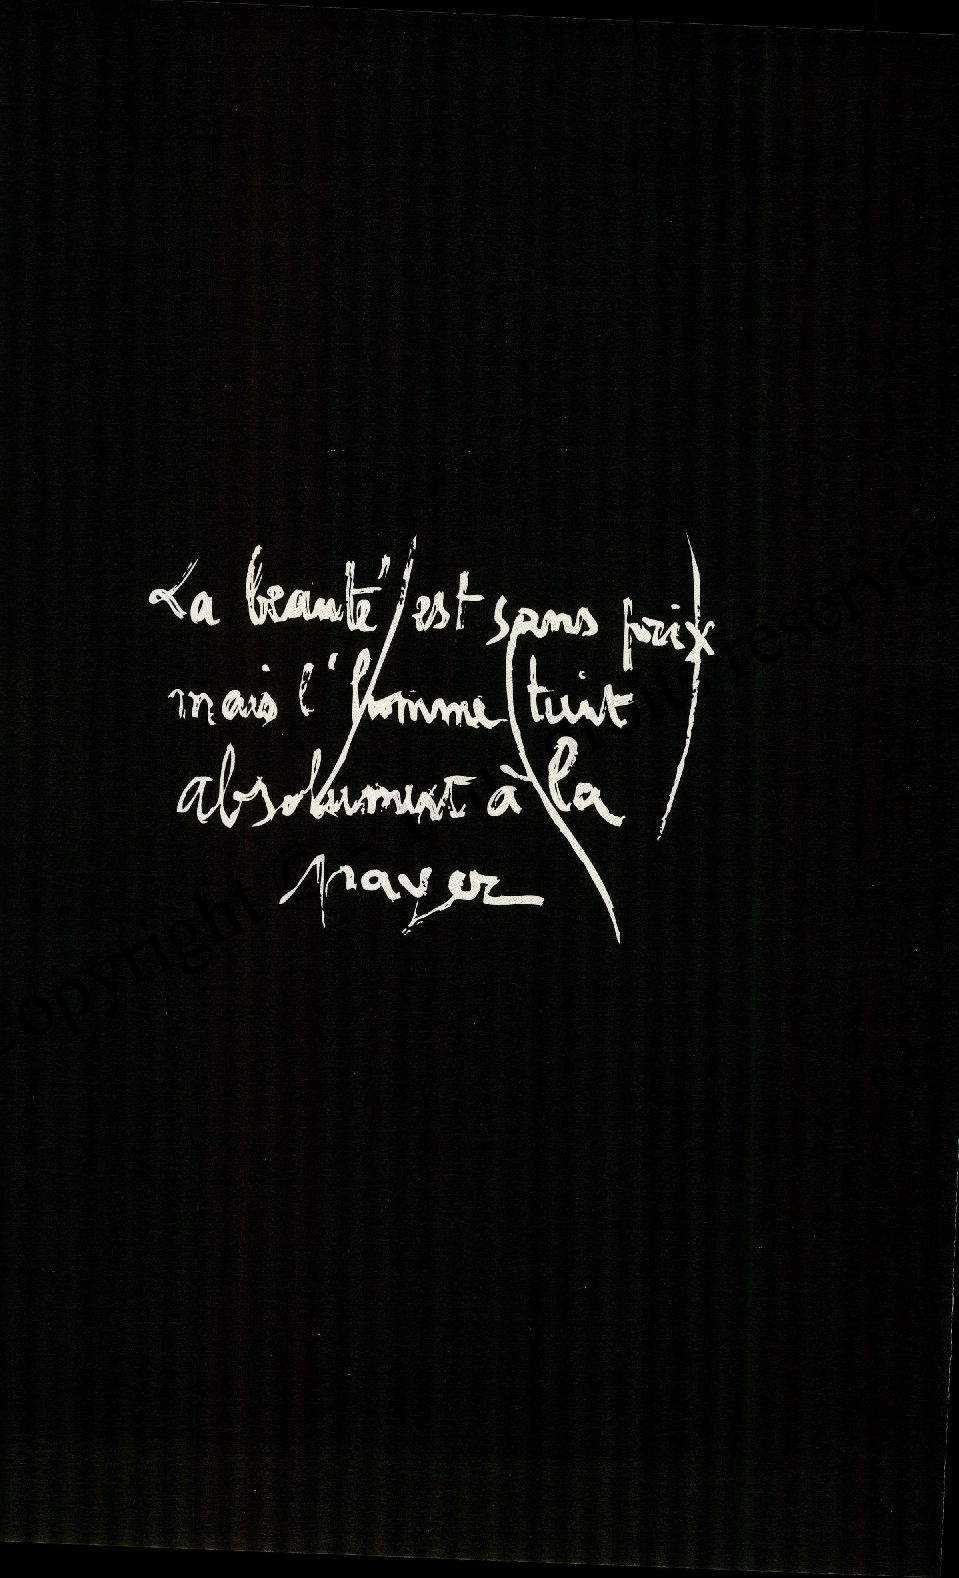 La beauté est sans prix
mais l'homme tient
absolument à la
payer
Copyright © - Tous droits réservés